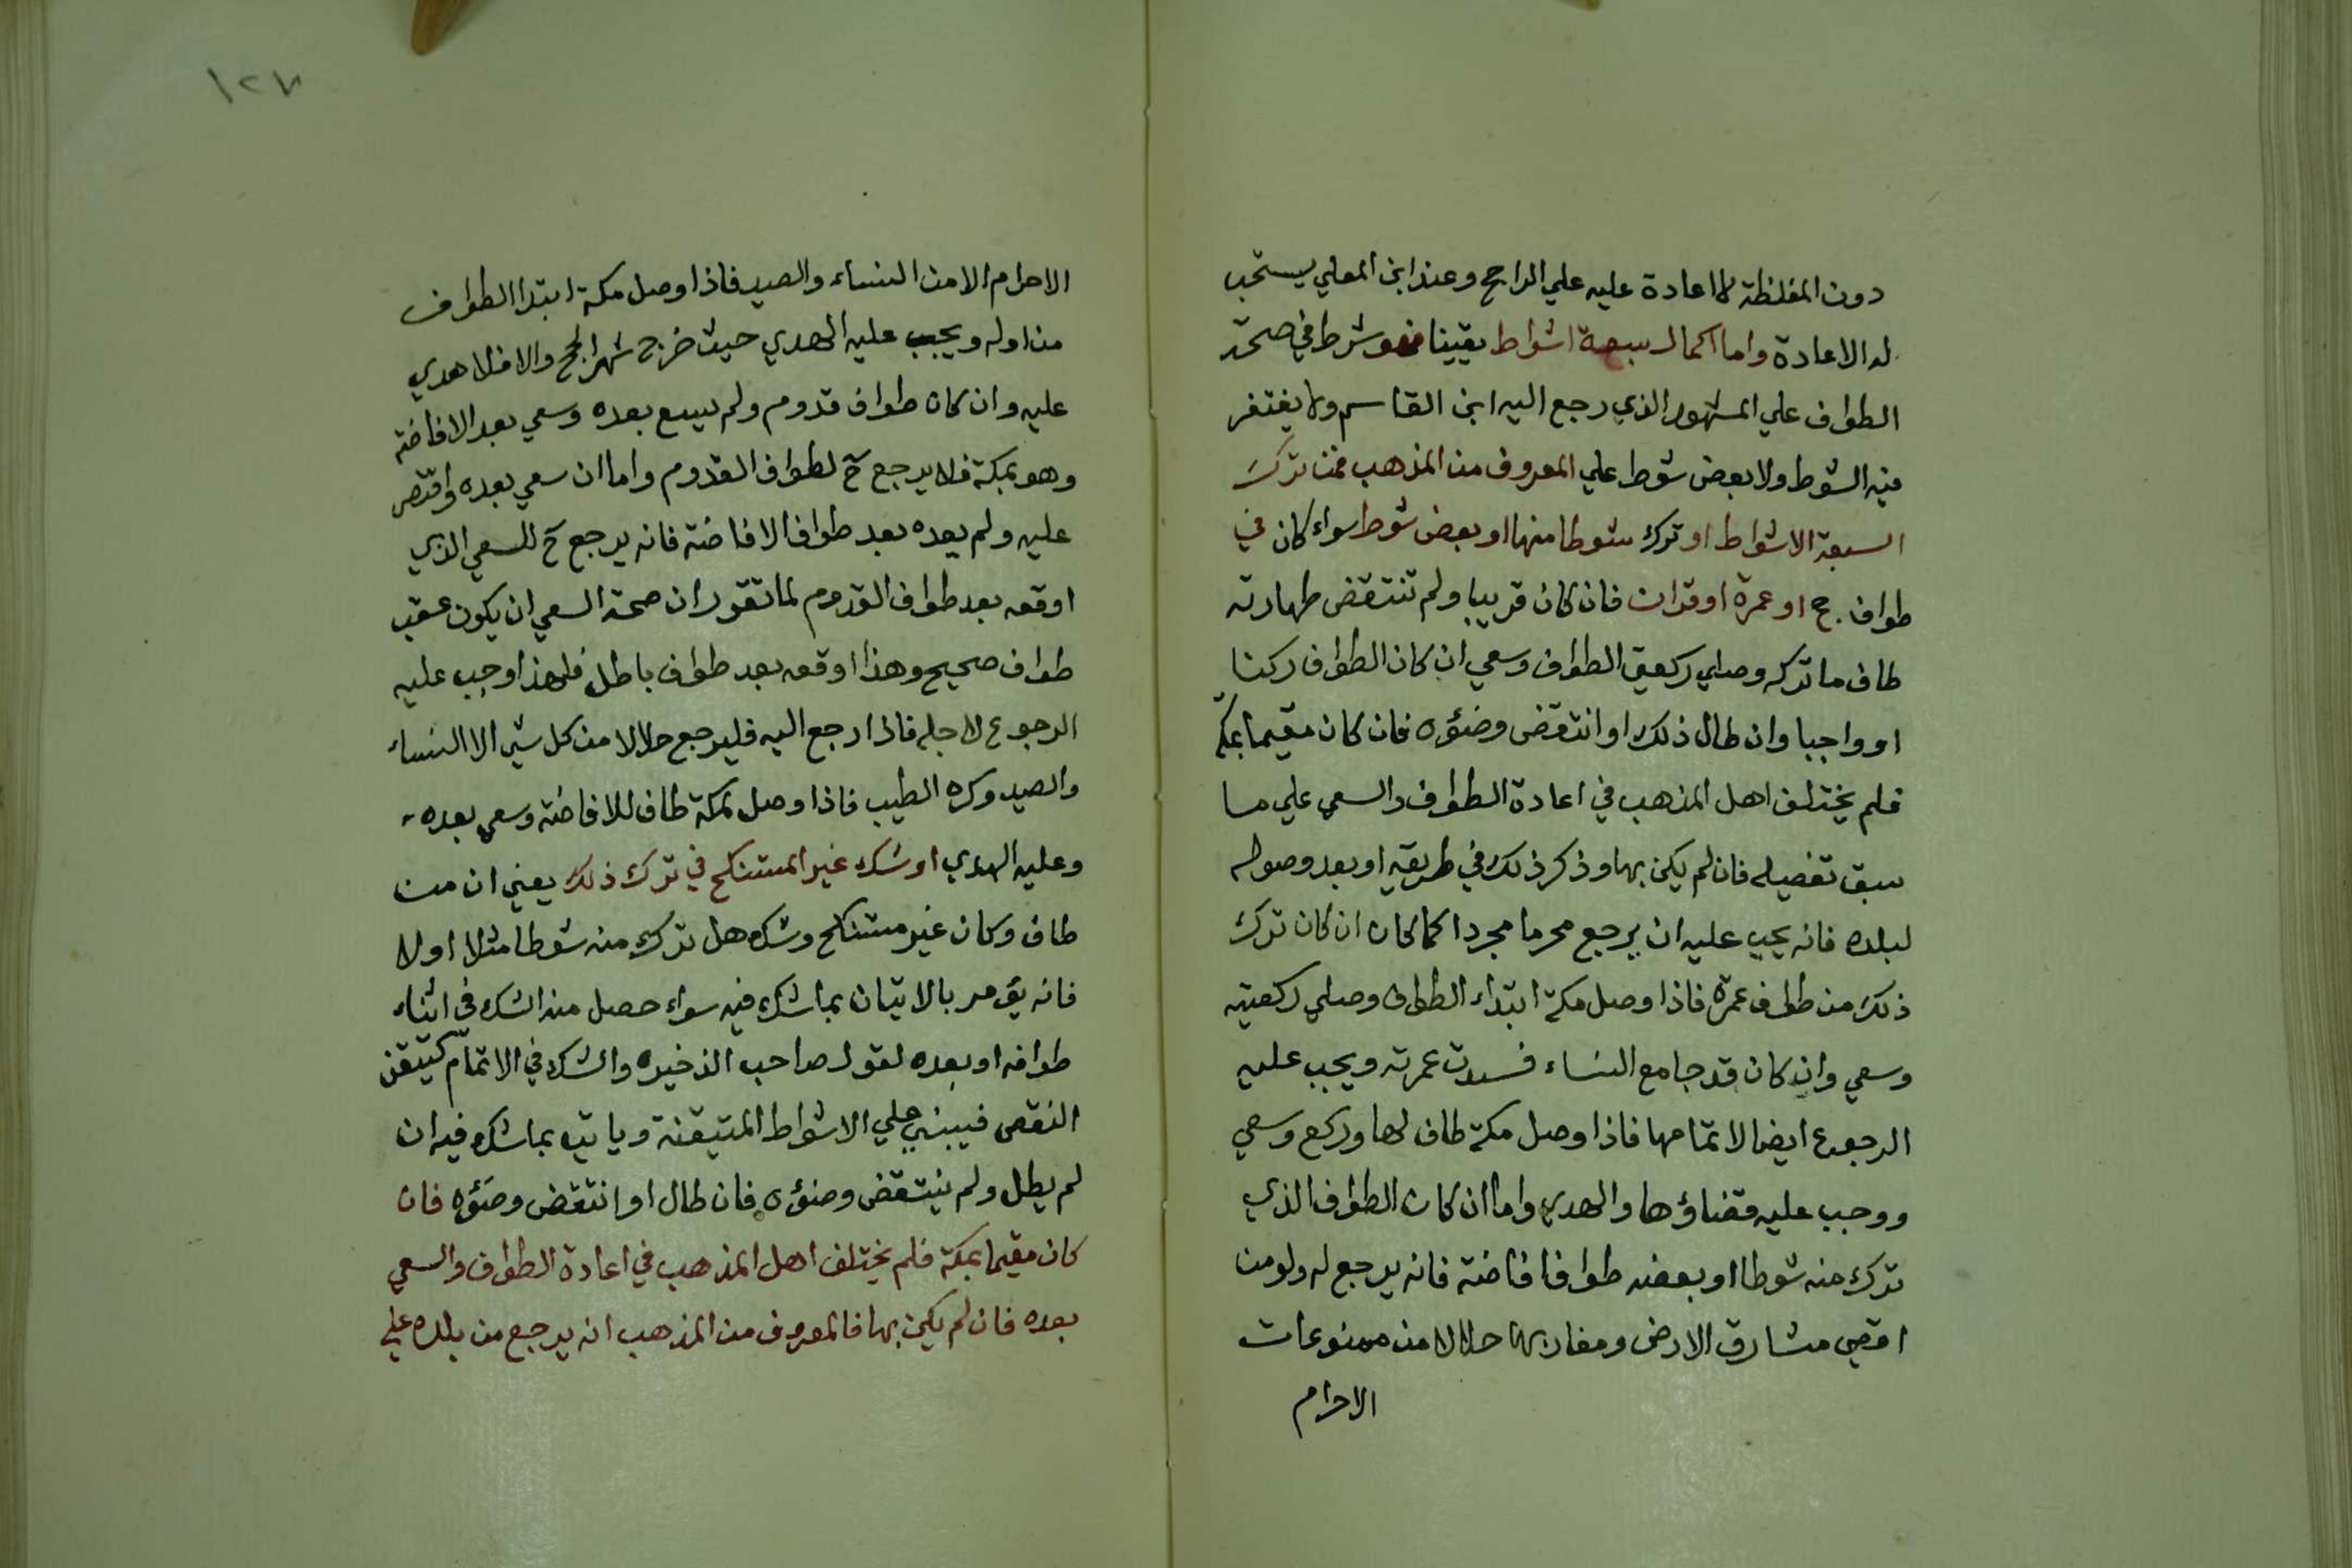 دون المغلظة لا اعادة عليه علي الراجح وعند ابن المعلي يستحب
له الاعادة واما اكمال سبعة اشواط يقينا فهو شرط في صحة
الطواف علي المشهور الذي رجع اليه ابن القاسم ولا يغتفر
فيه الشوط ولا بعض شوط علي المعروف من المذهب فمن ترك
السبعة الاشواط او ترك شوطا منها او بعض شوط سواء كان في
طواف حج او عمرة او قران فان كان قريبا ولم تنتقض طهارته
طاف ما تركه وصلي ركعتي الطواف وسعي ان كان الطواف ركنا
او واجبا وان طال ذلك او انتقض وضؤه فان كان مقيما بمكة
فلم يختلف اهل المذهب في اعادة الطواف والسعي علي ما
سبق تفصيله فان لم يكن بها وذكر ذلك في طريقه او بعد وصوله
لبلده فانه يجب عليه ان يرجع محرما مجردا كما كان ان كان ترك
ذلك من طواف عمرة فاذا وصل مكة ابتداء الطواف وصلي ركعتيه
وسعي وان كان قد جامع النساء فسدت عمرته ويجب عليه
الرجوع ايضا لاتمامها فاذا وصل مكة طاف لها وركع وسعي
ووجب عليه قضاؤها والهدي واما ان كان الطواف الذي
ترك منه شوطا او بعضه طواف افاضة فانه يرجع له ولو من
اقصي مشارق الارض ومغاربها حلالا من ممنوعات
الاحرام
١٢٧
الاحرام الا من النساء والصيد فاذا وصل مكة ابتدا الطواف
من اوله ويجب عليه الهدي حيث خرج شهر الحج والا فلا هدي
عليه وان كان طواف قدوم ولم يسع بعده وسعي بعد الافاضة
وهو بمكة فلا يرجع ح لطواف القدوم واما ان سعي بعده واقتصر
عليه ولم يعده بعد طواف الافاضة فانه يرجع ح للسعي الذي
اوقعه بعد طواف القدوم لما تقرر ان صحة السعي ان يكون عقب
طواف صحيح وهذا اوقعه بعد طواف باطل فلهذا وجب عليه
الرجوع لاجله فاذا رجع اليه فليرجع حلالا من كل شي الا النساء
والصيد وكره الطيب فاذا وصل بمكة طاف للافاضة وسعي بعده
وعليه الهدي او شك غير المستنكح في ترك ذلك يعني ان من
طاف وكان غير مستنكح وشك هل ترك منه شوطا مثلا او لا
فانه يؤمر بالاتيان بما شك فيه سواء حصل منه الشك في اثناء
طوافه او بعده لقول صاحب الذخيره والشك في الاتمام كتيقن
النقص فيبني علي الاشواط المتيقنة وياتي بما شك فيه ان
لم يطل ولم ينتقض وضؤه فان طال او انتقض وضؤه فان
كان مقيما بمكة فلم يختلف اهل المذهب في اعادة الطواف والسعي
بعده فان لم يكن بها فالمعروف من المذهب انه يرجع من بلده علي